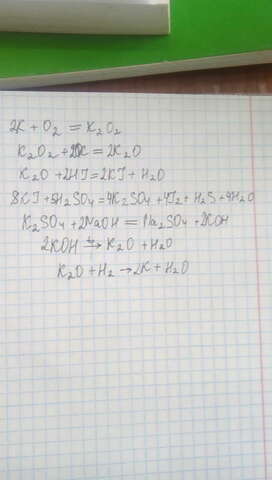 2K + O₂ = K₂O₂
K₂O₂ + 2K = 2K₂O
K₂O + 2HI = 2KI + H₂O
8KI + 5H₂SO₄ = 4K₂SO₄ + 4I₂ + H₂S + 4H₂O
K₂SO₄ + 2NaOH = Na₂SO₄ + 2KOH
2KOH → K₂O + H₂O
K₂O + H₂ → 2K + H₂O